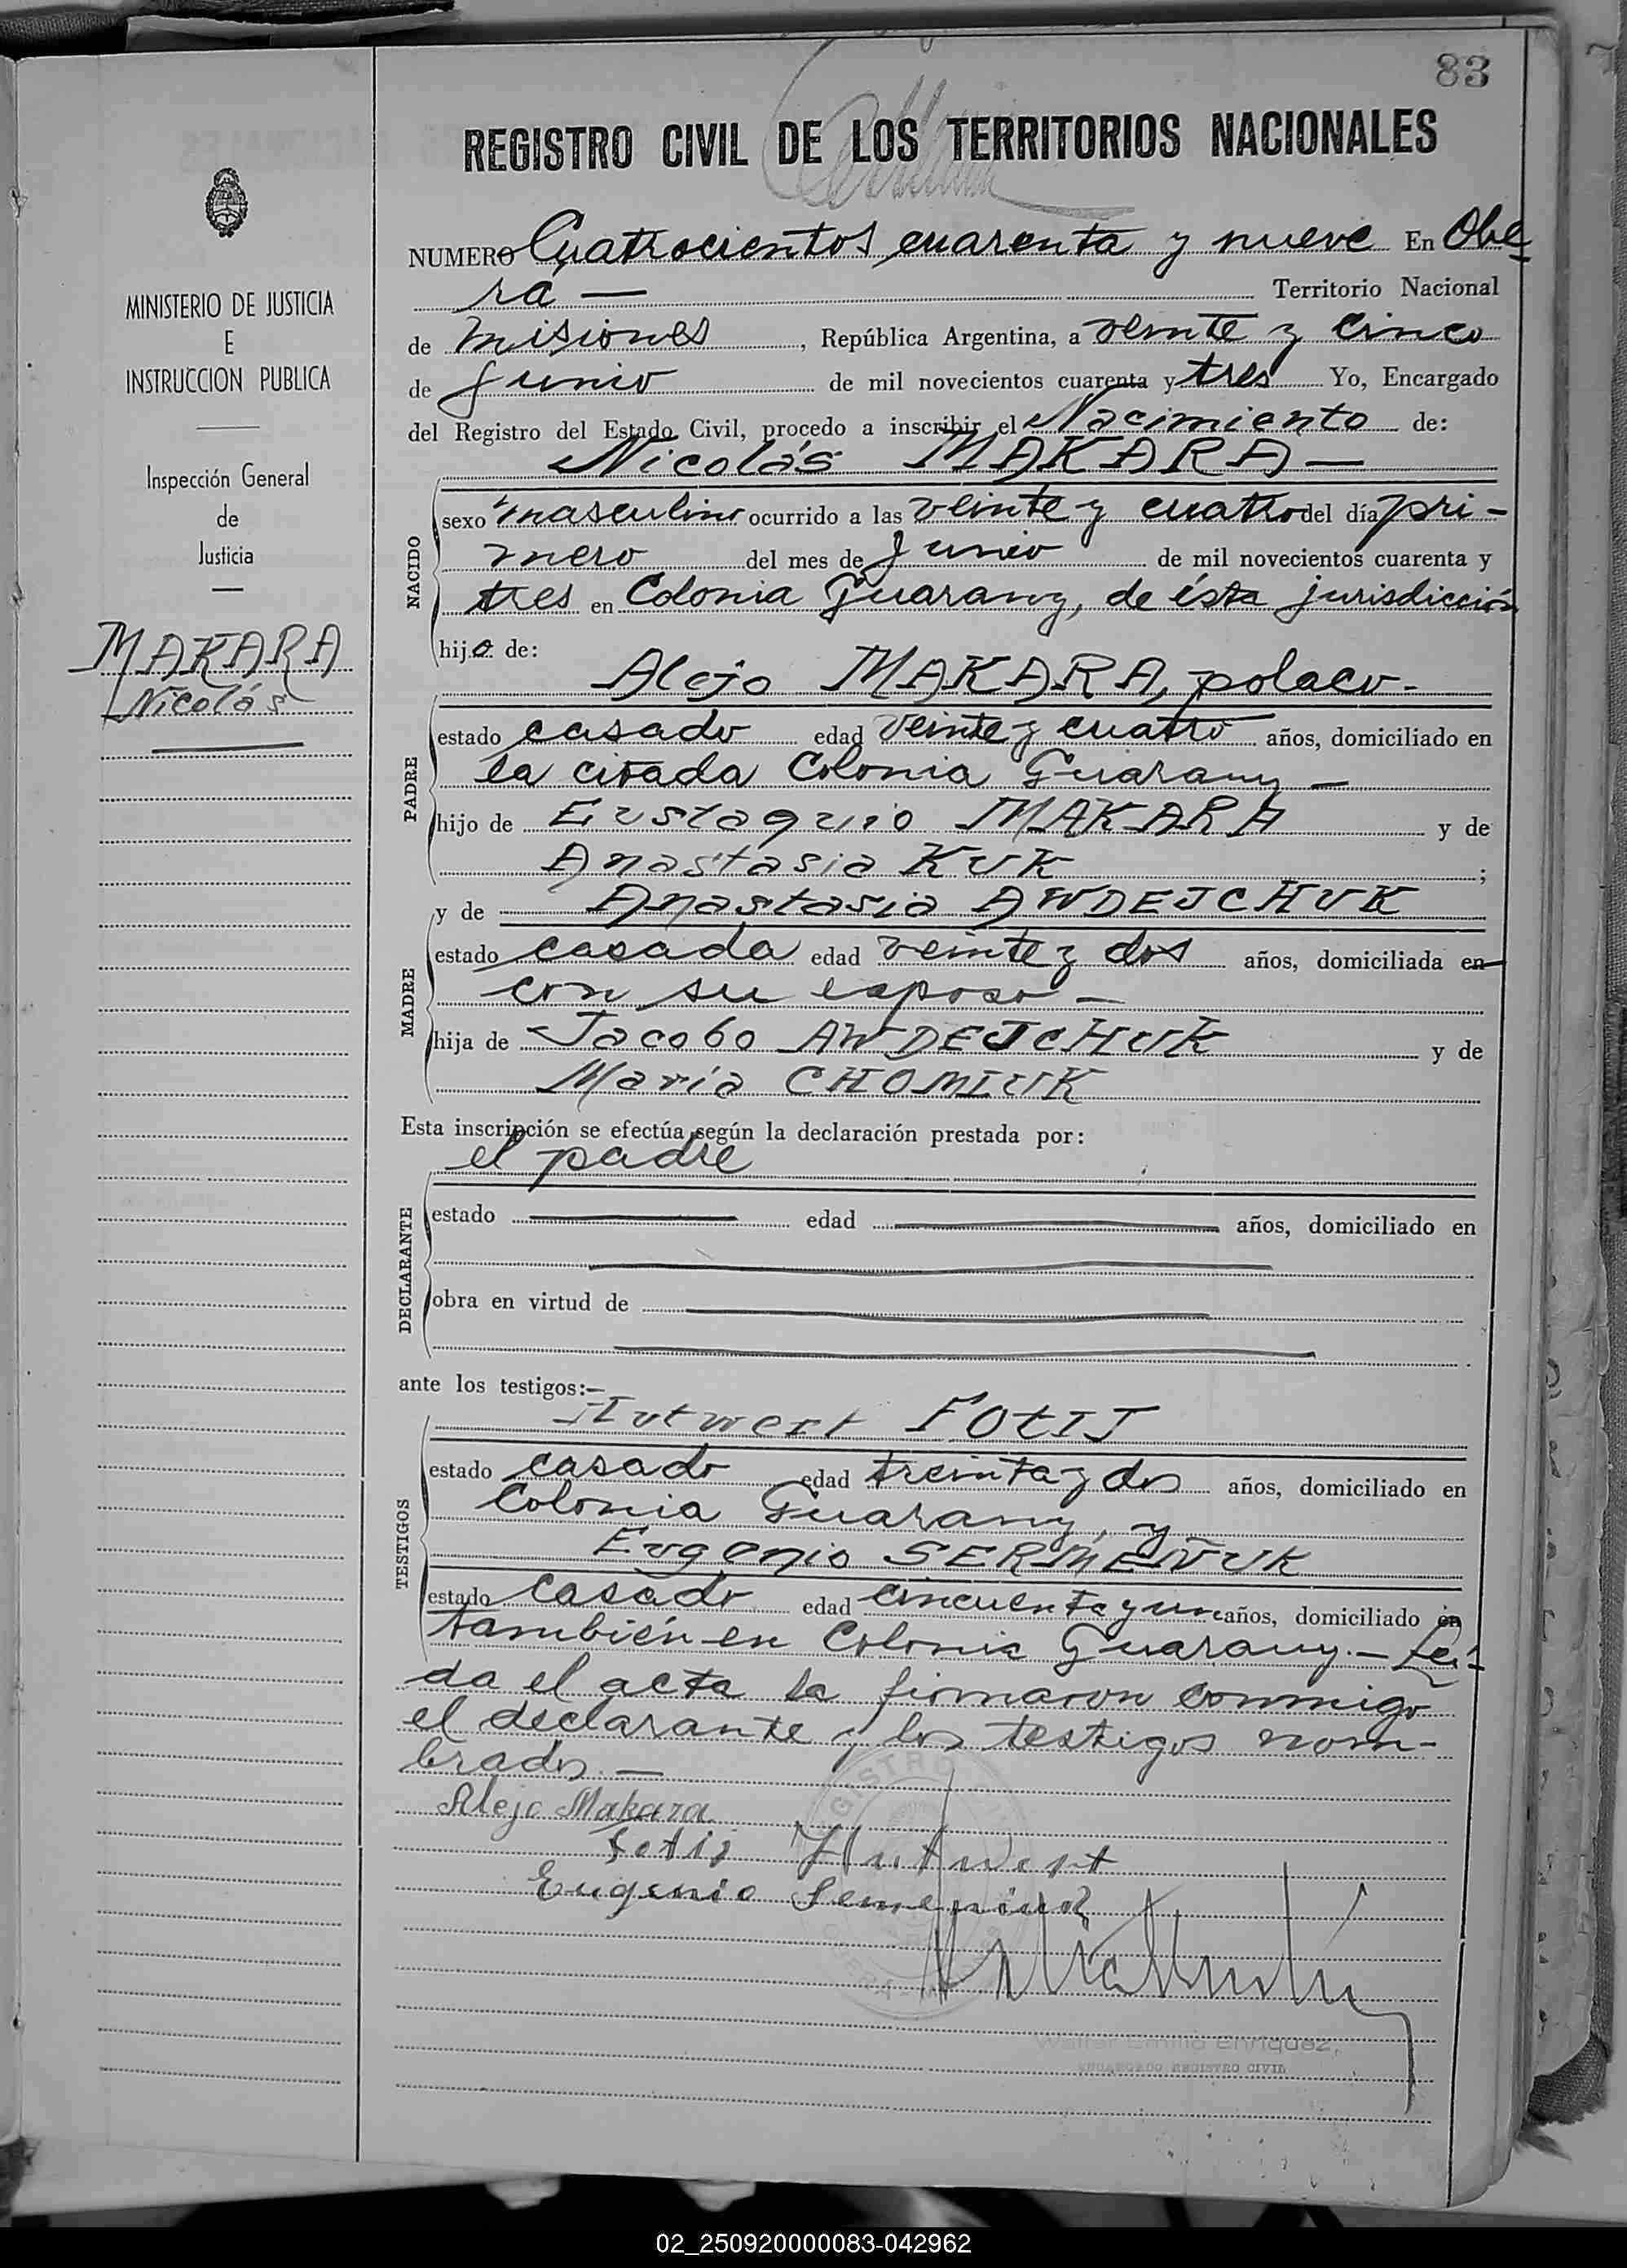 83
REGISTRO CIVIL DE LOS TERRITORIOS NACIONALES
MINISTERIO DE JUSTICIA
E
INSTRUCCION PUBLICA
Inspección General
de
Justicia
MAKARA
Nicolás
NUMERO Cuatrocientos cuarenta y nueve En Obe-
rá — Territorio Nacional
de Misiones, República Argentina, a veinte y cinco
de Junio de mil novecientos cuarenta y tres Yo, Encargado
del Registro del Estado Civil, procedo a inscribir el Nacimiento de:
Nicolás MAKARA —
NACIDO
sexo masculino ocurrido a las veinte y cuatro del día pri-
mero del mes de Junio de mil novecientos cuarenta y
tres en Colonia Guarany, de ésta jurisdicción
hijo de:
Alejo MAKARA, polaco-
PADRE
estado casado edad veinte y cuatro años, domiciliado en
la citada Colonia Guarany —
hijo de Eustaquio MAKARA y de
Anastasia KUK ;
y de Anastasia AWDEJCHUK
MADRE
estado casada edad veinte y dos años, domiciliada en
con su esposo —
hija de Jacobo AWDEJCHUK y de
María CHOMIUK
Esta inscripción se efectúa según la declaración prestada por:
el padre
DECLARANTE
estado edad años, domiciliado en
obra en virtud de
ante los testigos:—
Hutwert FOtIJ
TESTIGOS
estado casado edad treinta y dos años, domiciliado en
Colonia Guarany, y
Eugenio SERMEÑUK
estado casado edad cincuenta y un años, domiciliado en
también en Colonia Guarany.— Leí-
da el acta la firmaron conmigo
el declarante y los testigos nom-
brados.—
Alejo Makara
Fotij Hutwert
Eugenio
Walter Emilio Enriquez,
ENCARGADO REGISTRO CIVIL
02_250920000083-042962